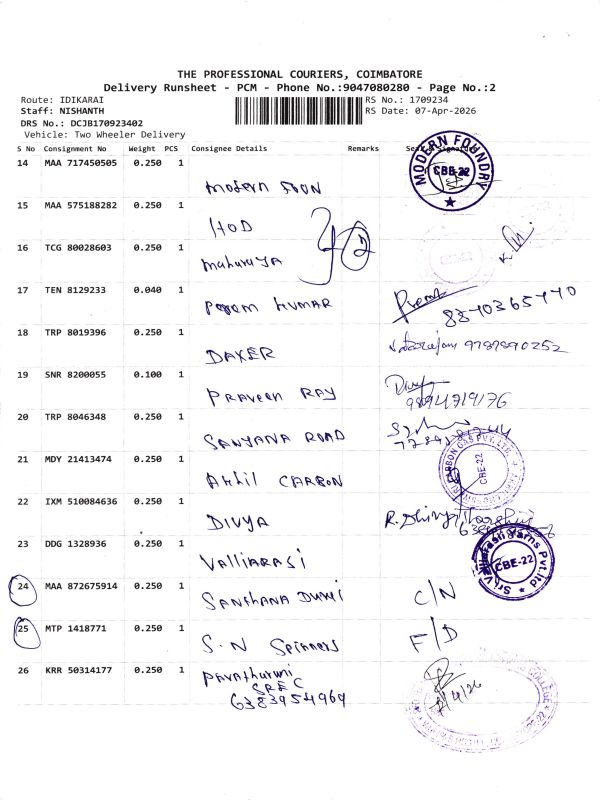 THE PROFESSIONAL COURIERS, COIMBATORE
Delivery Runsheet - PCM - Phone No.:9047080280 - Page No.:2
Route: IDIKARAI RS No.: 1709234
Staff: NISHANTH RS Date: 07-Apr-2026
DRS No.: DCJB170923402
Vehicle: Two Wheeler Delivery
S No Consignment No Weight PCS Consignee Details Remarks
14 MAA 717450505 0.250 1
MODERN FOUNDRY CBE-22
modern
15 MAA 575188282 0.250 1
HOD
16 TCG 80028603 0.250 1
maharaja
17 TEN 8129233 0.040 1
KUMAR
18 TRP 8019396 0.250 1
DAKER 9787890252
19 SNR 8200055 0.100 1
PRAVEEN RAY
20 TRP 8046348 0.250 1
SANJANA ROAD
21 MDY 21413474 0.250 1
Akhil CARBON
CARBON GAS PVT. LTD. CBE-22
22 IXM 510084636 0.250 1
DIVYA
23 DDG 1328936 0.250 1
VALLIARASI
Yarns Pvt.ltd CBE-22
24 MAA 872675914 0.250 1
SANTHANA C/N
25 MTP 1418771 0.250 1
S.N Spinners F/D
26 KRR 50314177 0.250 1
SREC
6383954969
COLLEGE